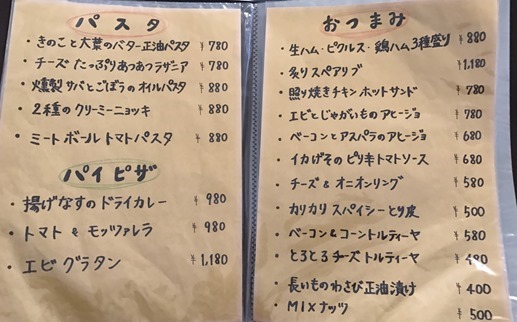 パスタ
・きのこと大葉のバター正油パスタ ¥780
・チーズたっぷりあつあつラザニア ¥780
・燻製サバとごぼうのオイルパスタ ¥880
・2種のクリーミーニョッキ ¥880
・ミートボールトマトパスタ ¥880
パイピザ
・揚げなすのドライカレー ¥980
・トマト & モッツァレラ ¥980
・エビグラタン ¥1,180
おつまみ
・生ハム・ピクルス・鶏ハム3種盛り ¥880
・炙りスペアリブ ¥1,180
・照り焼きチキンホットサンド ¥780
・エビとじゃがいものアヒージョ ¥780
・ベーコンとアスパラのアヒージョ ¥680
・イカげそのピリ辛トマトソース ¥680
・チーズ & オニオンリング ¥580
・カリカリスパイシーとり皮 ¥500
・ベーコン & コーントルティーヤ ¥580
・とろとろチーズトルティーヤ ¥480
・長いものわさび正油漬け ¥400
・MIXナッツ ¥500